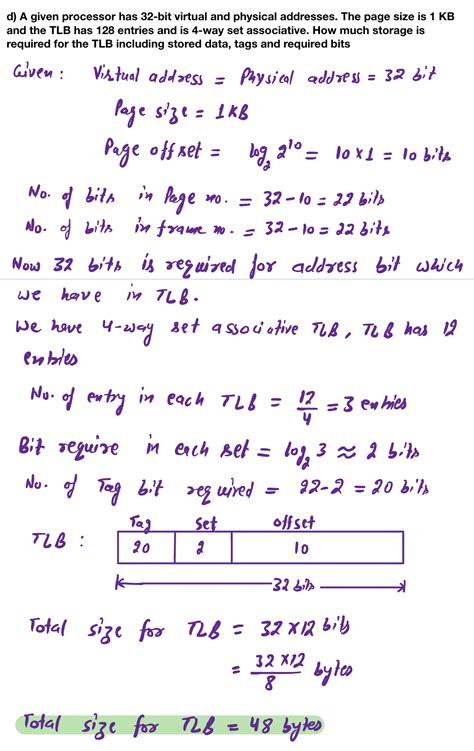 d) A given processor has 32-bit virtual and physical addresses. The page size is 1 KB
and the TLB has 128 entries and is 4-way set associative. How much storage is
required for the TLB including stored data, tags and required bits
Given: Virtual address = Physical address = 32 bit
Page size = 1KB
Page offset = log₂ 2¹⁰ = 10 × 1 = 10 bits
No. of bits in Page no. = 32 - 10 = 22 bits
No. of bits in frame no. = 32 - 10 = 22 bits
Now 32 bits is required for address bit which
we have in TLB.
We have 4-way set associative TLB, TLB has 12
entries
No. of entry in each TLB = 12/4 = 3 entries
Bit require in each set = log₂ 3 ≈ 2 bits
No. of Tag bit required = 22 - 2 = 20 bits
Tag Set offset
TLB : 20 2 10
32 bits
Total size for TLB = 32 × 12 bits
= 32 × 12 / 8 bytes
Total size for TLB = 48 bytes